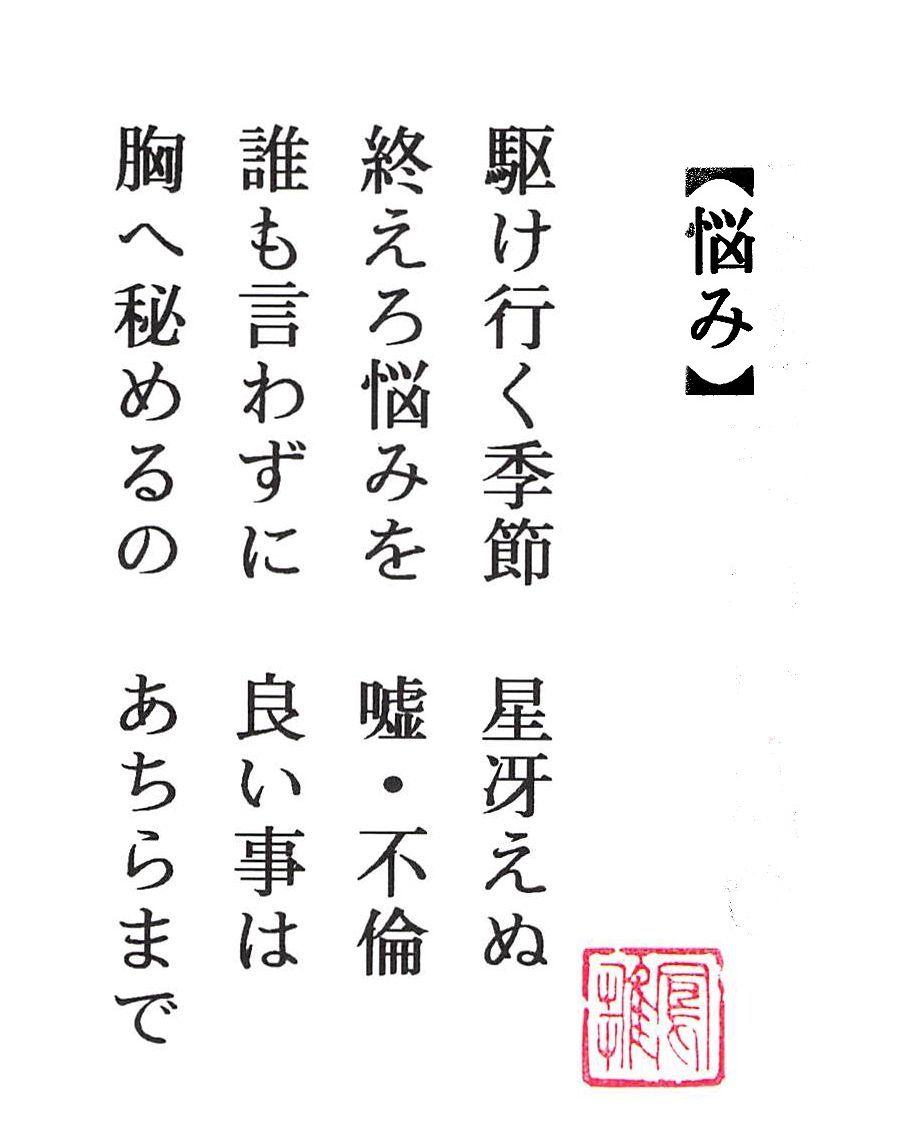 【悩み】
駆け行く季節　星冴えぬ
終えろ悩みを　嘘・不倫
誰も言わずに　良い事は
胸へ秘めるの　あちらまで